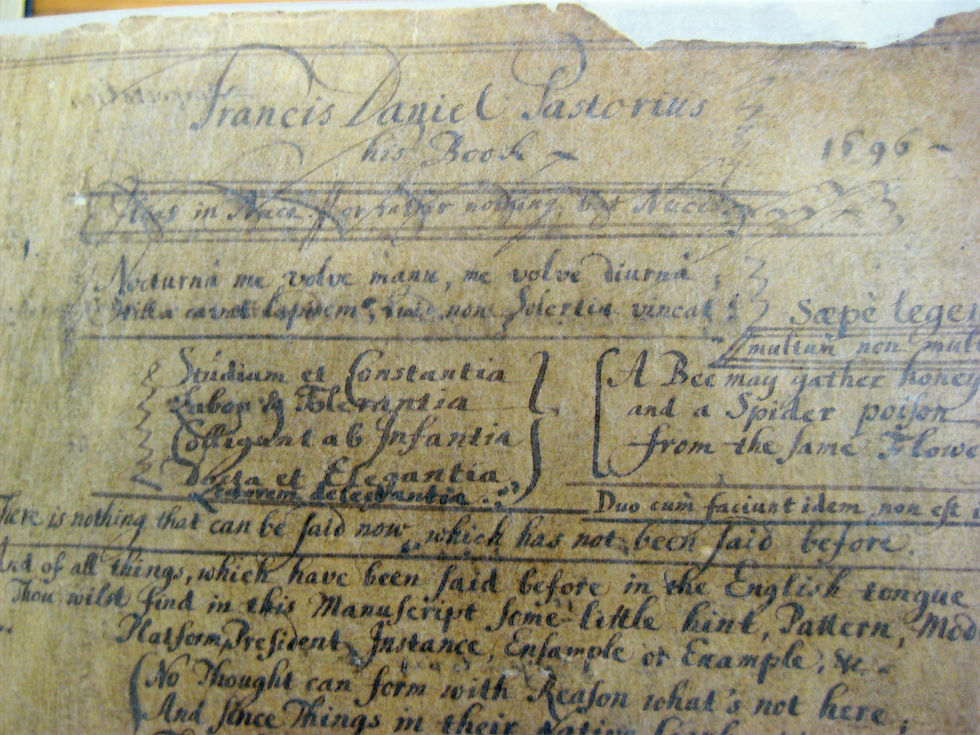 Francis Daniel Pastorius
his Book ~ 1696 ~
in Nuce nothing but Nuce
Nocturnâ me volve manu, me volve diurnâ
Stilla cavat lapidem, quid non Solertia vincat?
Sæpè lege
multum non mult
Studium et Constantia
Labor & Tolerantia
Colligunt ab Infantia
Docta et Elegantia
A Bee may gather honey
and a Spider poiſon
from the ſame Flowe
Duo cum faciunt idem, non eſt i
There is nothing that can be ſaid now, which has not been ſaid before.
And of all things, which have been ſaid before in the English tongue
Thou wilst find in this Manuſcript ſome little hint, Pattern, Mod
Platform, Preſident, Instance, Enſample or Example, &c.
No Thought can form with Reaſon what's not here;
And ſince Things in their Native